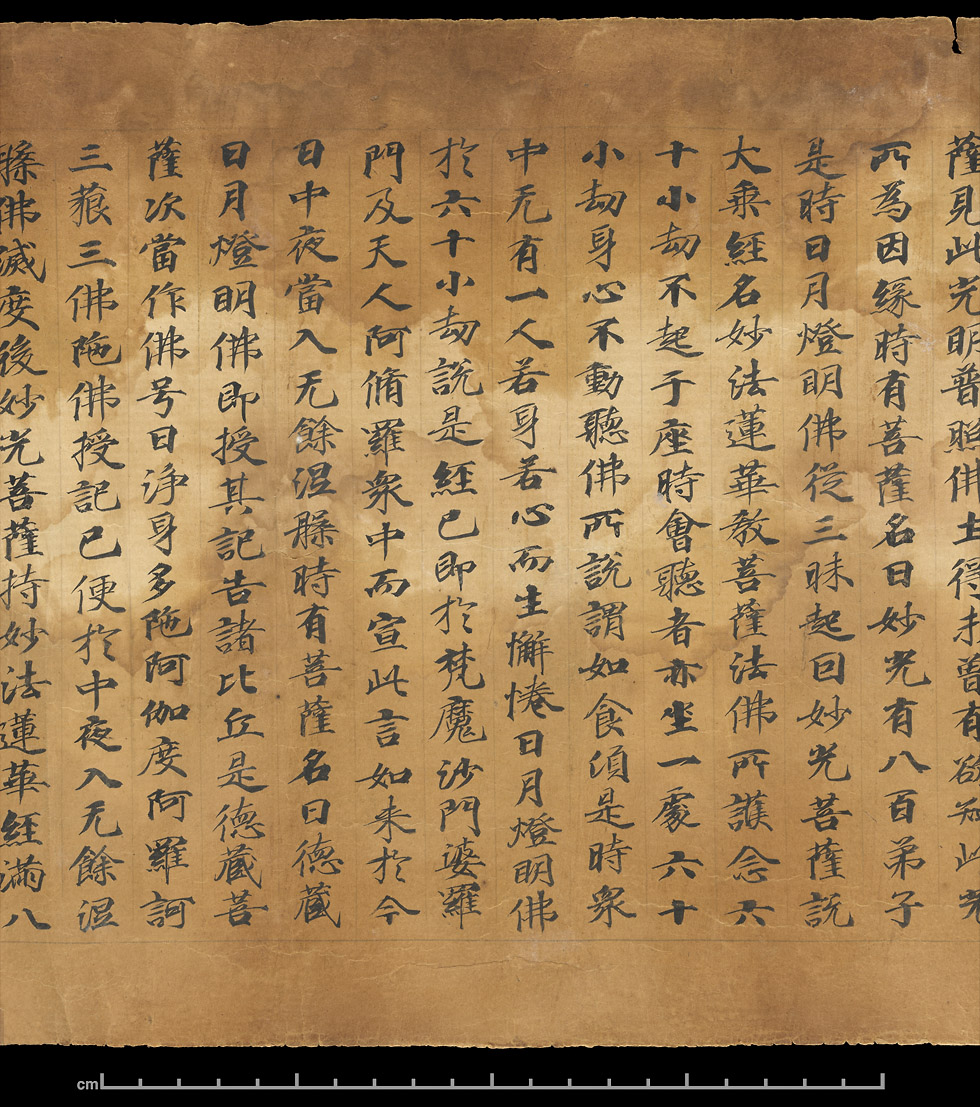 薩見此光明普照佛土得未曾有欲知此光
所為因緣時有菩薩名曰妙光有八百弟子
是時日月燈明佛從三昧起因妙光菩薩說
大乘經名妙法蓮華教菩薩法佛所護念六
十小劫不起于座時會聽者亦坐一處六十
小劫身心不動聽佛所說謂如食須是時眾
中无有一人若身若心而生懈惓日月燈明佛
於六十小劫說是經已即於梵魔沙門婆羅
門及天人阿脩羅眾中而宣此言如来於今
日中夜當入无餘涅槃時有菩薩名曰德藏
日月燈明佛即授其記告諸比丘是德藏菩
薩次當作佛号曰淨身多陁阿伽度阿羅訶
三藐三佛陁佛授記已便於中夜入无餘涅
槃佛滅度後妙光菩薩持妙法蓮華經滿八
cm